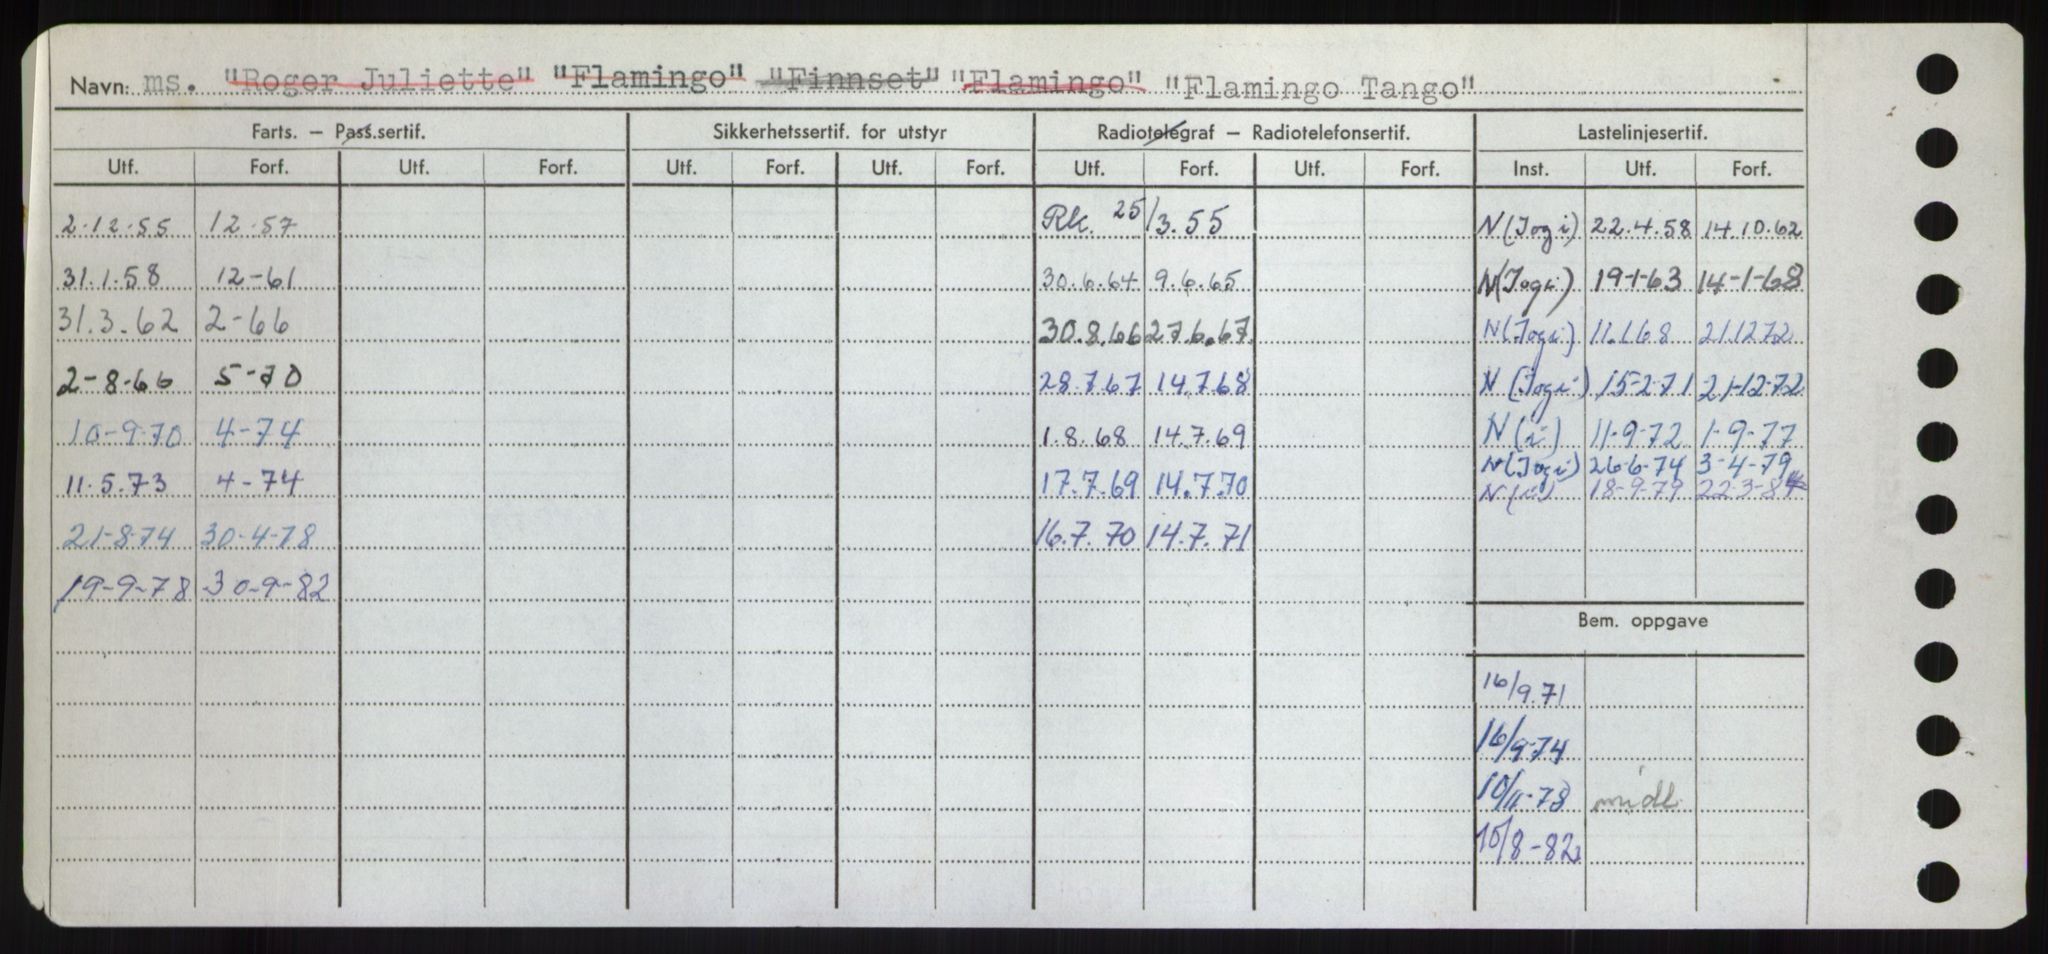 Navn: ms. "Roger Juliette" "Flamingo" "Finnset" "Flamingo" "Flamingo Tango"
Farts. – Pass.sertif. Sikkerhetssertif. for utstyr Radiotelegraf – Radiotelefonsertif. Lastelinjesertif.
Utf. Forf. Utf. Forf. Utf. Forf. Utf. Forf. Utf. Forf. Utf. Forf. Inst. Utf. Forf.
2.12.55 12-57 Rk. 25/3.55 N(Jogi) 22.4.58 14.10.62
31.1.58 12-61 30.6.64 9.6.65 N(Jogi) 19-1-63 14-1-68
31.3.62 2-66 30.8.66 27.6.67 N(Jogi) 11.1.68 21.12 72
2-8-66 5-70 28.7.67 14.7.68 N(Jogi) 15-2-71 21-12-72
10-9-70 4-74 1.8.68 14.7.69 N(i) 11-9-72 1-9-77
11.5.73 4-74 17.7.69 14.7.70 N(Jogi) 26-6-74 3-4-79
N(i) 18-9-79 22-3-84
21-8-74 30-4-78 16.7.70 14.7.71
19-9-78 30-9-82
Bem. oppgave
16/9.71
16/9-74
10/11-78 midl.
10/8-82